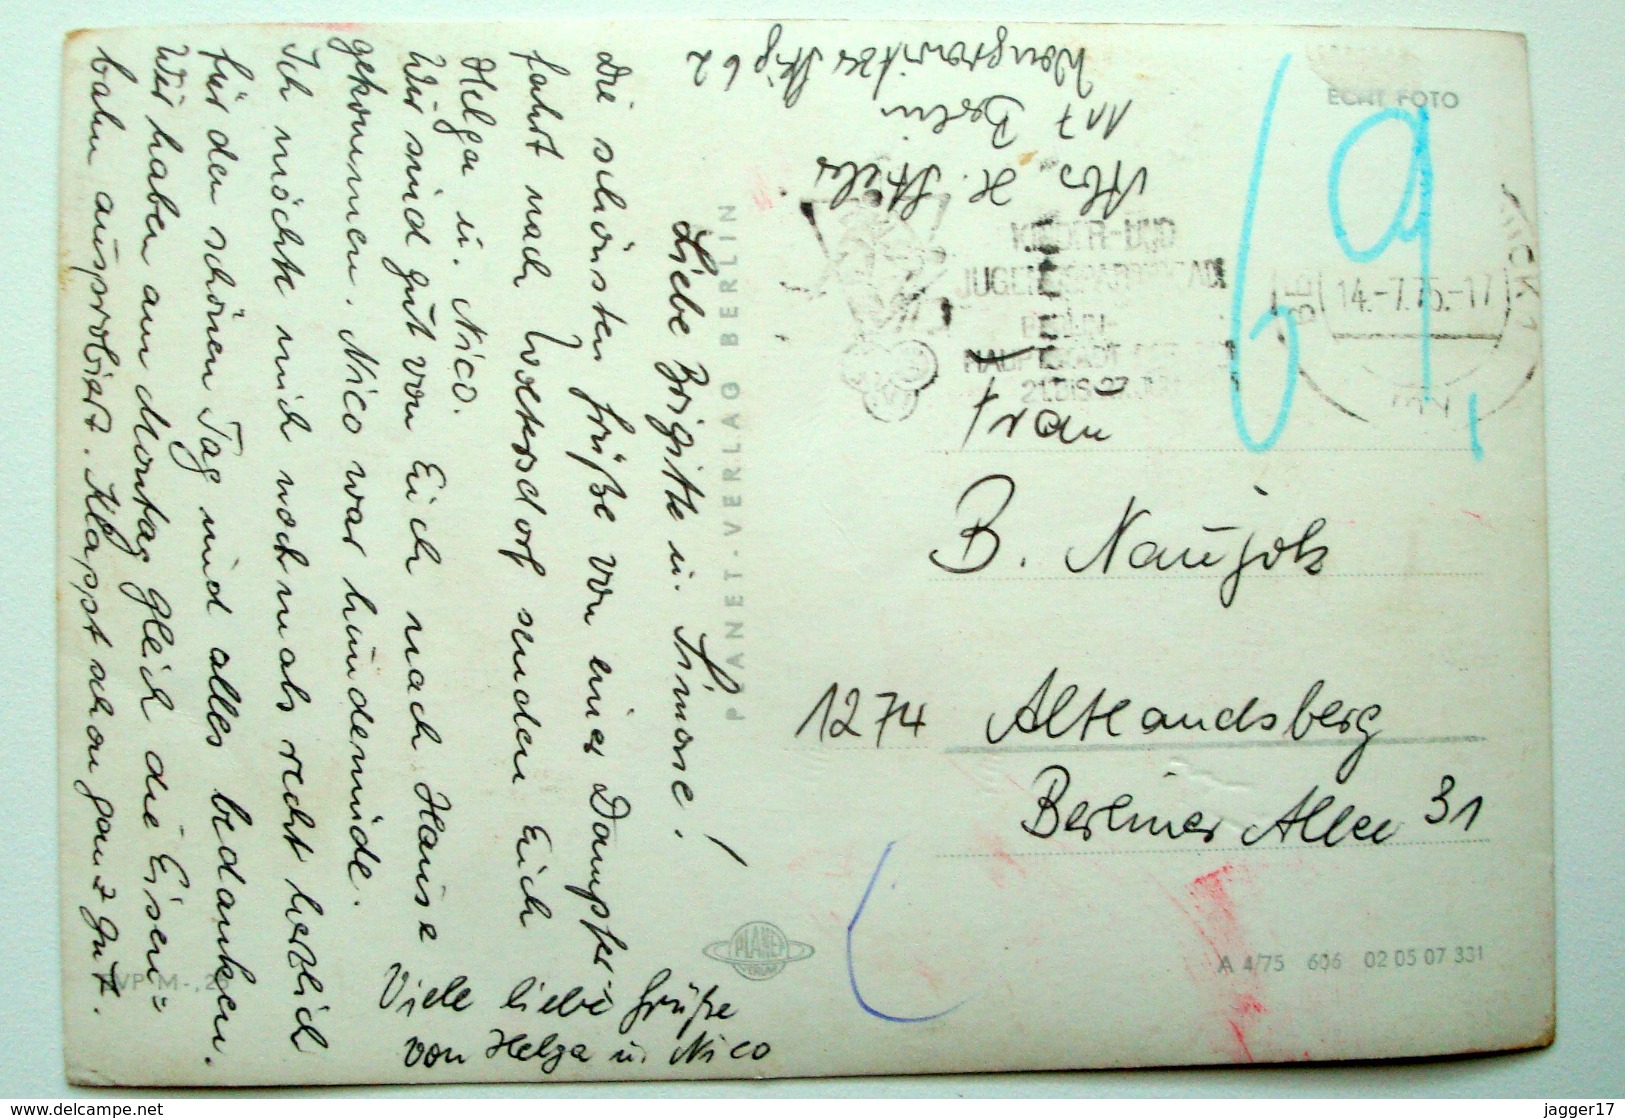 Liebe Brigitte u. Simone!
Die schönsten Grüße von einer Dampfer-
fahrt nach Woltersdorf senden Euch
Helga u. Nico.
Wir sind gut von Euch nach Hause
gekommen. Nico war hundemüde.
Ich möchte mich nochmals recht herzlich
für den schönen Tag und alles bedanken.
Wir haben am Montag gleich die Eisen=
bahn ausprobiert. Klappt schon ganz gut.
Viele liebe Grüße
von Helga u. Nico
Abs. H.
117 Berlin
62
ECHT FOTO
69,
KINDER-UND
BERLIN-
HAUPTSTADT
14.-7.75.-17
Frau
B. Naujoks
1274 Altlandsberg
Berliner Allee 31
PLANET-VERLAG BERLIN
PLANET
VERLAG
A 4/75 606 02 05 07 331
www.delcampe.net
jagger17